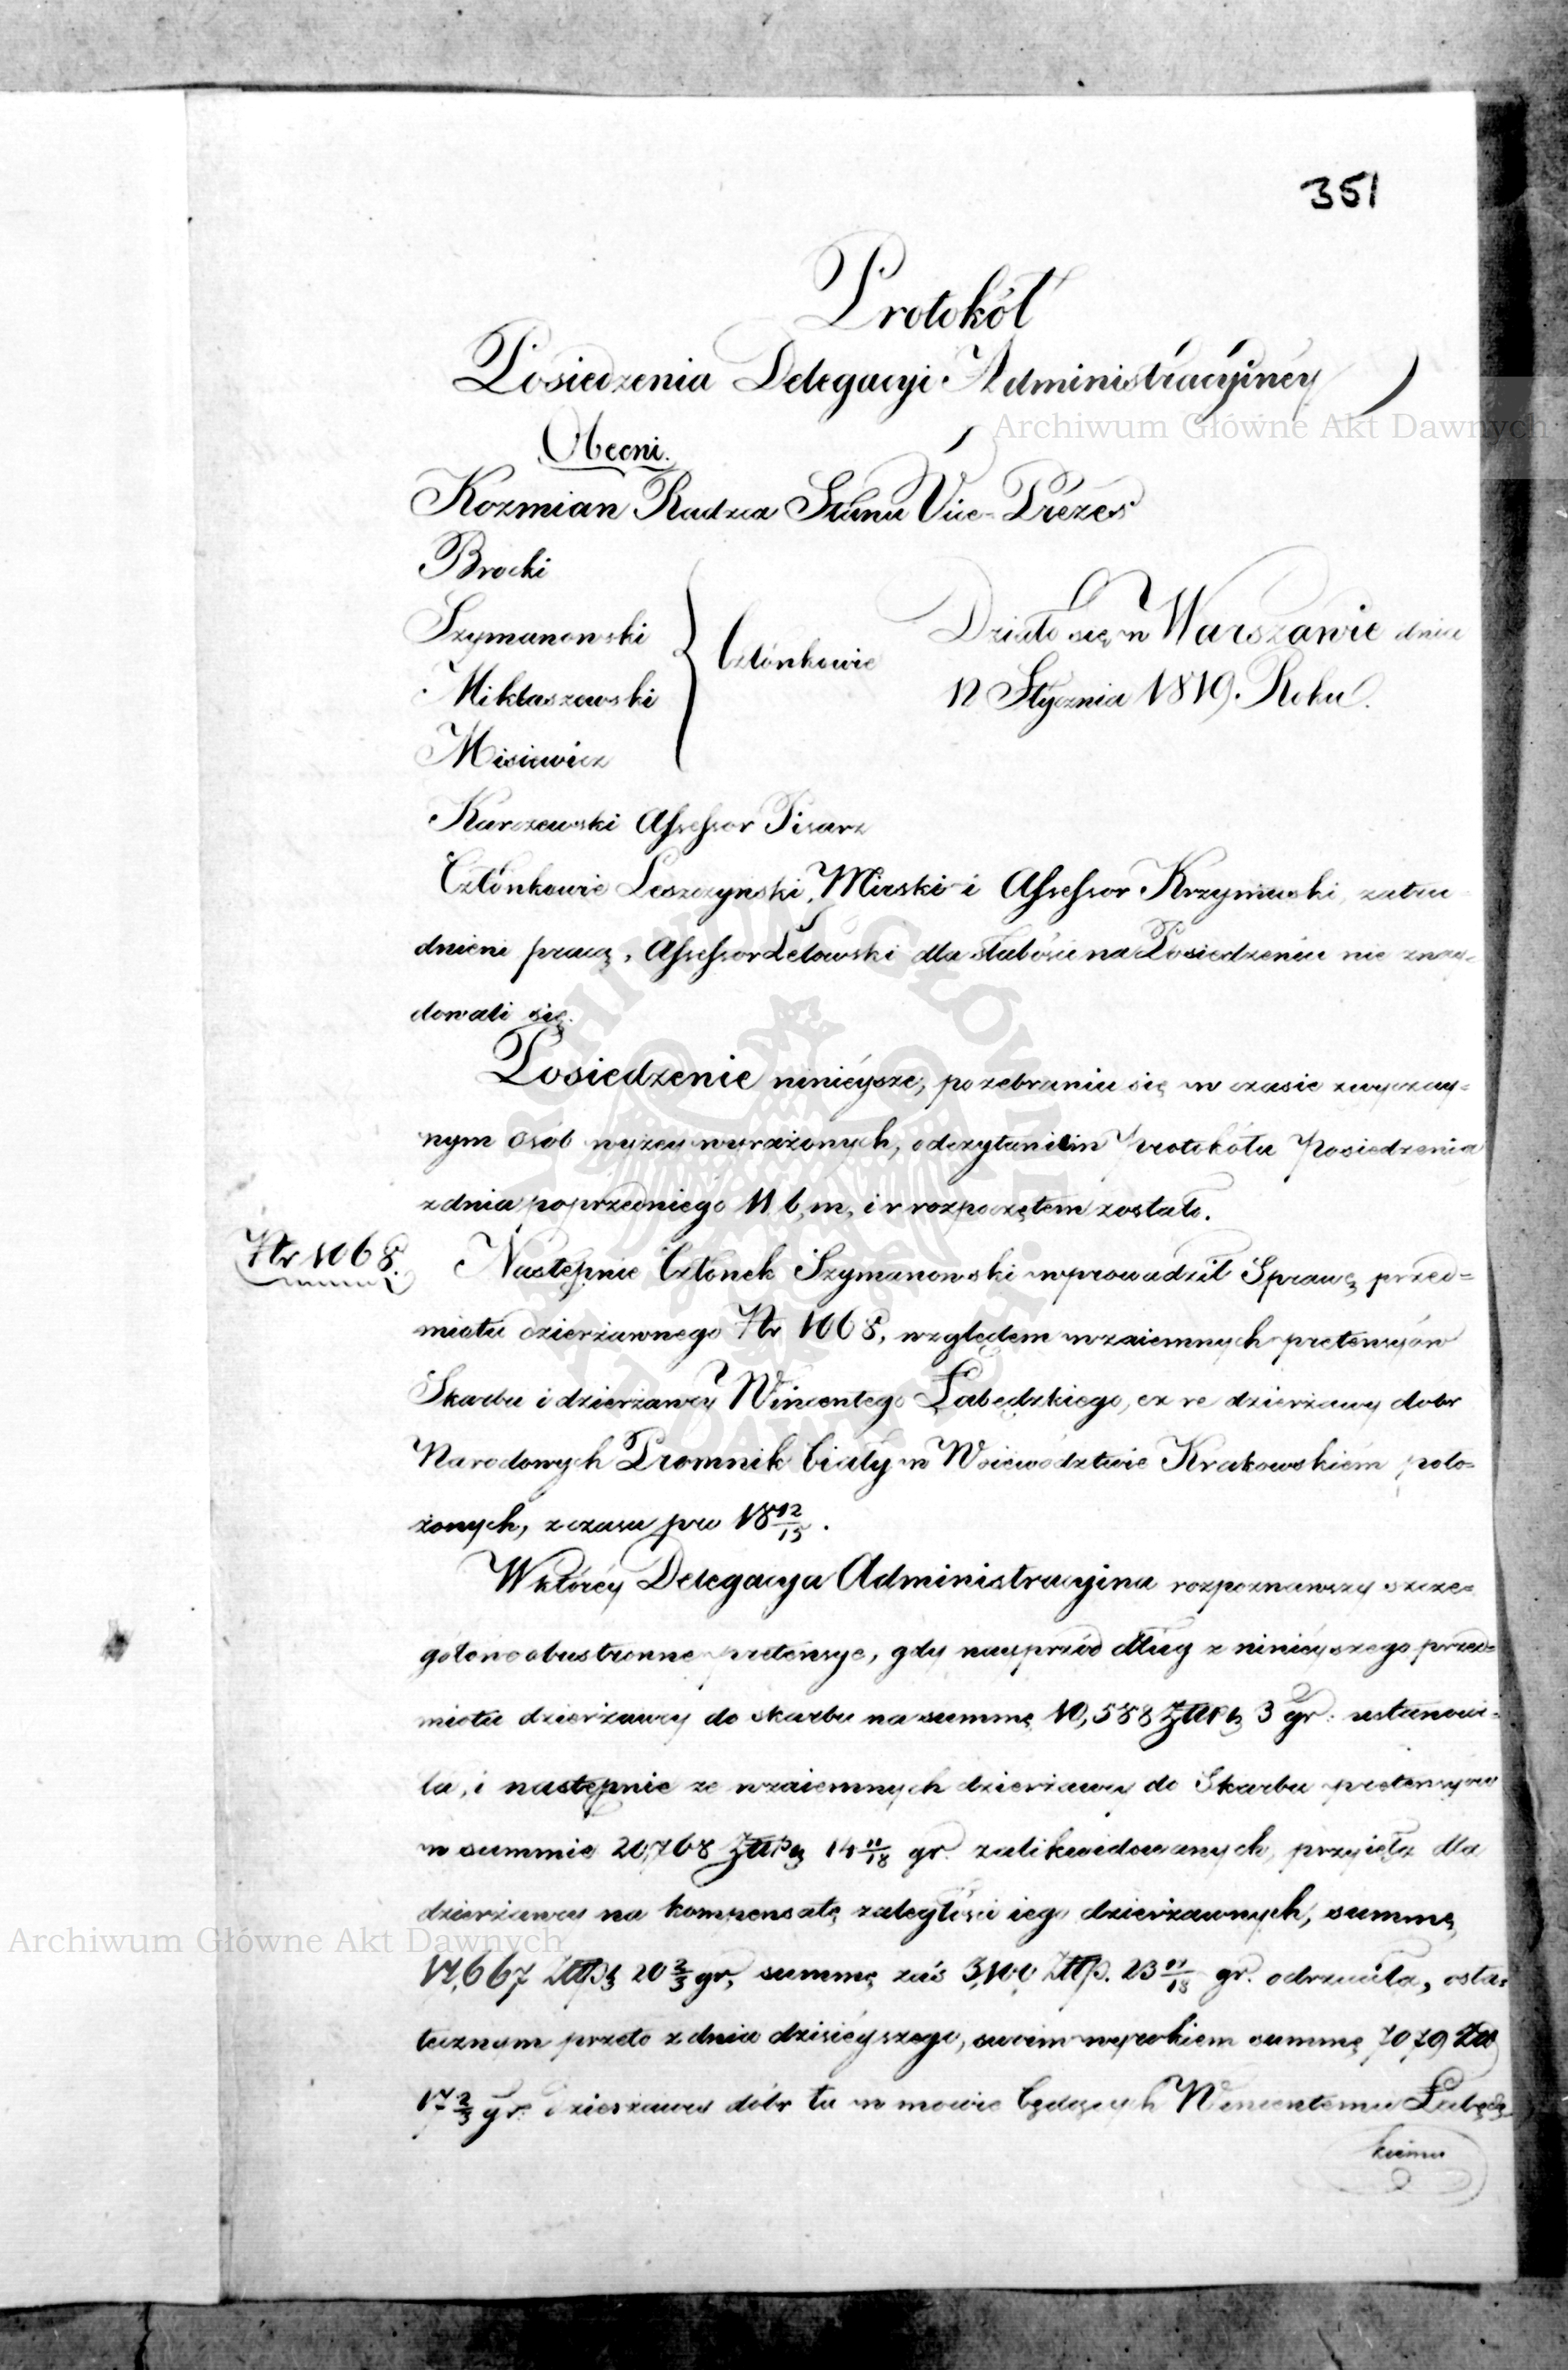 351
Protokół
Posiedzenia Delegacyi Administracyinéy
Obecni.
Kozmian Radzca Stanu Vice-Prezes
Brocki
Szymanowski
Mikłaszewski
Misiewicz
Członkowie
Działo się w Warszawie dnia
12 Stycznia 1819. Roku.
Karczewski Assessor Pisarz
Członkowie Leszczyński, Mirski i Assessor Krzymuski, zatru-
dnieni pracą, Assessor Łętowski dla słabości na Posiedzeniu nie znay-
dowali się.
Posiedzenie ninieysze, po zebraniu się w czasie zwyczay=
nym osób wyżey wyrażonych, odczytaniem Protokółu Posiedzenia
z dnia poprzedniego 11 b, m, i r rozpoczętem zostało.
Nr 1068.
Następnie Członek Szymanowski wprowadził Sprawę przed=
miotu dzierżawnego Nr 1068, względem wzaiemnych pretensyów
Skarbu i dzierżawcy Wincentego Łabędzkiego, ex re dzierżawy dobr
Narodowych Promnik biały w Woiewództwie Krakowskiém poło=
żonych, z czasu pro 18 12/15.
W któréy Delegacya Administracyina rozpoznawszy szcze=
gółowo obustronne pretensye, gdy nayprzód dług z ninieyszego przed=
miotu dzierżawcy do skarbu na summę 10,588 Złłp 3 gr. ustanowi=
ła, i następnie ze wzaiemnych dzierżawcy do Skarbu pretensyów
w summie 20,768 Złłp 14 11/18 gr. zalikwidowanych, przyięła dla
dzierżawcy na kompensatę zaległości iego dzierżawnych, summę
17,667 Złłp 20 2/3 gr, summę zaś 3,100 Złłp. 23 17/18 gr. odrzuciła, osta=
tecznym przeto z dnia dzisieyszego, swoim wyrokiem summę 7079 Zł
17 2/3 gr. dzierżawcy dóbr tu w mowie będących Wincentemu Łabędz
kiemu
Archiwum Główne Akt Dawnych
Archiwum Główne Akt Dawnych
ARCHIWUM GŁÓWNE AKT DAWNYCH